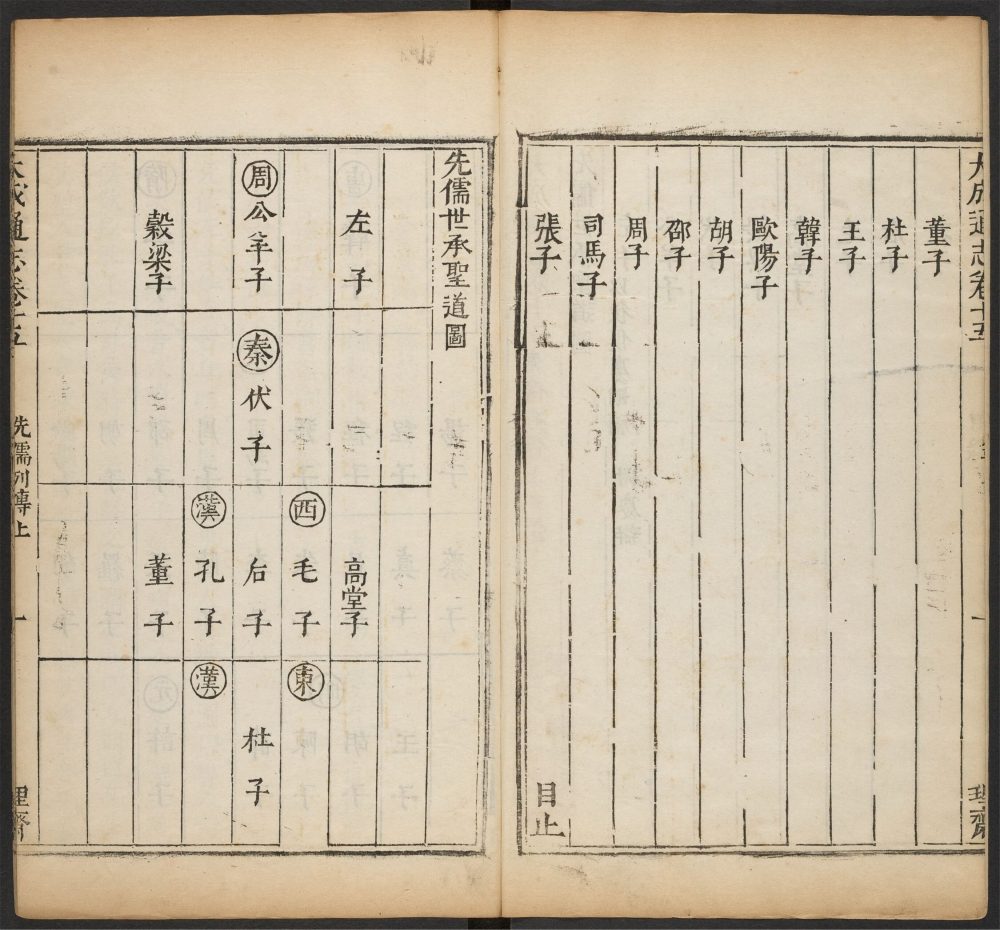 大成通志卷十五
理齋
董子
杜子
王子
韓子
歐陽子
胡子
邵子
周子
司馬子
張子
目止
先儒世承聖道圖
左子
周
公羊子
穀梁子
秦
伏子
西
漢
高堂子
毛子
后子
孔子
董子
東
漢
杜子
大成通志卷十五
先儒列傳上
一
理齋